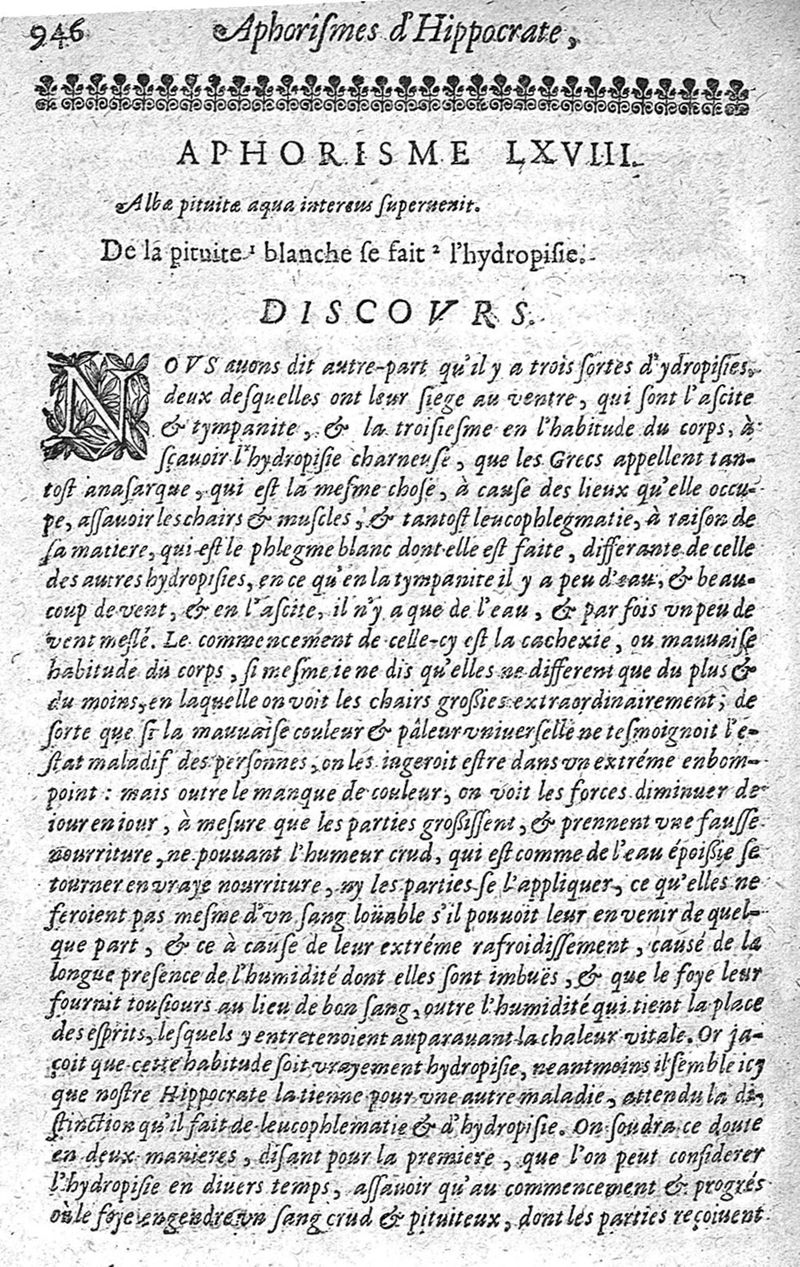 946 Aphoriſmes d'Hippocrate,
APHORISME LXVIII.
Albæ pituitæ aqua intercus ſuperuenit.
De la pituite ¹ blanche ſe fait ² l'hydropiſie.
DISCOVRS.
NOVS auons dit autre-part qu'il y a trois ſortes d'ydropiſies,
deux deſquelles ont leur ſiege au ventre, qui ſont l'aſcite
& tympanite, & la troiſieſme en l'habitude du corps, à
sçauoir l'hydropiſie charneuſe, que les Grecs appellent tan-
toſt anaſarque, qui eſt la meſme choſe, à cauſe des lieux qu'elle occu-
pe, aſſauoir les chairs & muſcles, & tantoſt leucophlegmatie, à raiſon de
ſa matiere, qui eſt le phlegme blanc dont elle eſt faite, differante de celle
des autres hydropiſies, en ce qu'en la tympanite il y a peu d'eau, & beau-
coup de vent, & en l'aſcite, il n'y a que de l'eau, & par fois vn peu de
vent meſlé. Le commencement de celle-cy eſt la cachexie, ou mauuaiſe
habitude du corps, ſi meſme ie ne dis qu'elles ne different que du plus &
du moins, en laquelle on voit les chairs groſſies extraordinairement; de
ſorte que ſi la mauuaiſe couleur & pâleur vniuerſelle ne teſmoignoit l'e-
ſtat maladif des perſonnes, on les iugeroit eſtre dans vn extréme enbom-
point : mais outre le manque de couleur, on voit les forces diminuer de
iour en iour, à meſure que les parties groſſiſſent, & prennent vne fauſſe
nourriture, ne pouuant l'humeur crud, qui eſt comme de l'eau époiſſie ſe
tourner en vraye nourriture, ny les parties ſe l'appliquer, ce qu'elles ne
feroient pas meſme d'vn ſang loüable s'il pouuoit leur en venir de quel-
que part, & ce à cauſe de leur extréme rafroidiſſement, cauſé de la
longue preſence de l'humidité dont elles ſont imbuës, & que le foye leur
fournit touſiours au lieu de bon ſang, outre l'humidité qui tient la place
des eſprits, leſquels y entretenoient auparauant la chaleur vitale. Or ja-
çoit que cette habitude ſoit vrayement hydropiſie, neantmoins il ſemble icy
que noſtre Hippocrate la tienne pour vne autre maladie, attendu la di-
ſtinction qu'il fait de leucophlematie & d'hydropiſie. On ſoudra ce doute
en deux manieres, diſant pour la premiere, que l'on peut conſiderer
l'hydropiſie en diuers temps, aſſauoir qu'au commencement & progrés
où le foye engendre vn ſang crud & pituiteux, dont les parties reçoiuent